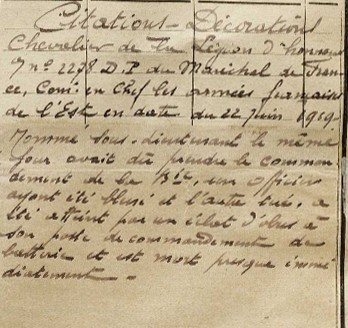 Citations - Décorations
Chevalier de la Légion d'honneur
n° 2278 D.P. du Maréchal de Fran-
ce, Com. en Chef les armées françaises
de l'Est en date du 22 juin 1919.
Nommé sous-lieutenant le même
jour avait dû prendre le comman-
dement de la Bie, un officier
ayant été blessé et l'autre tué, a
été atteint par un éclat d'obus à
son poste de commandement de
batterie et est mort presque immé
diatement -